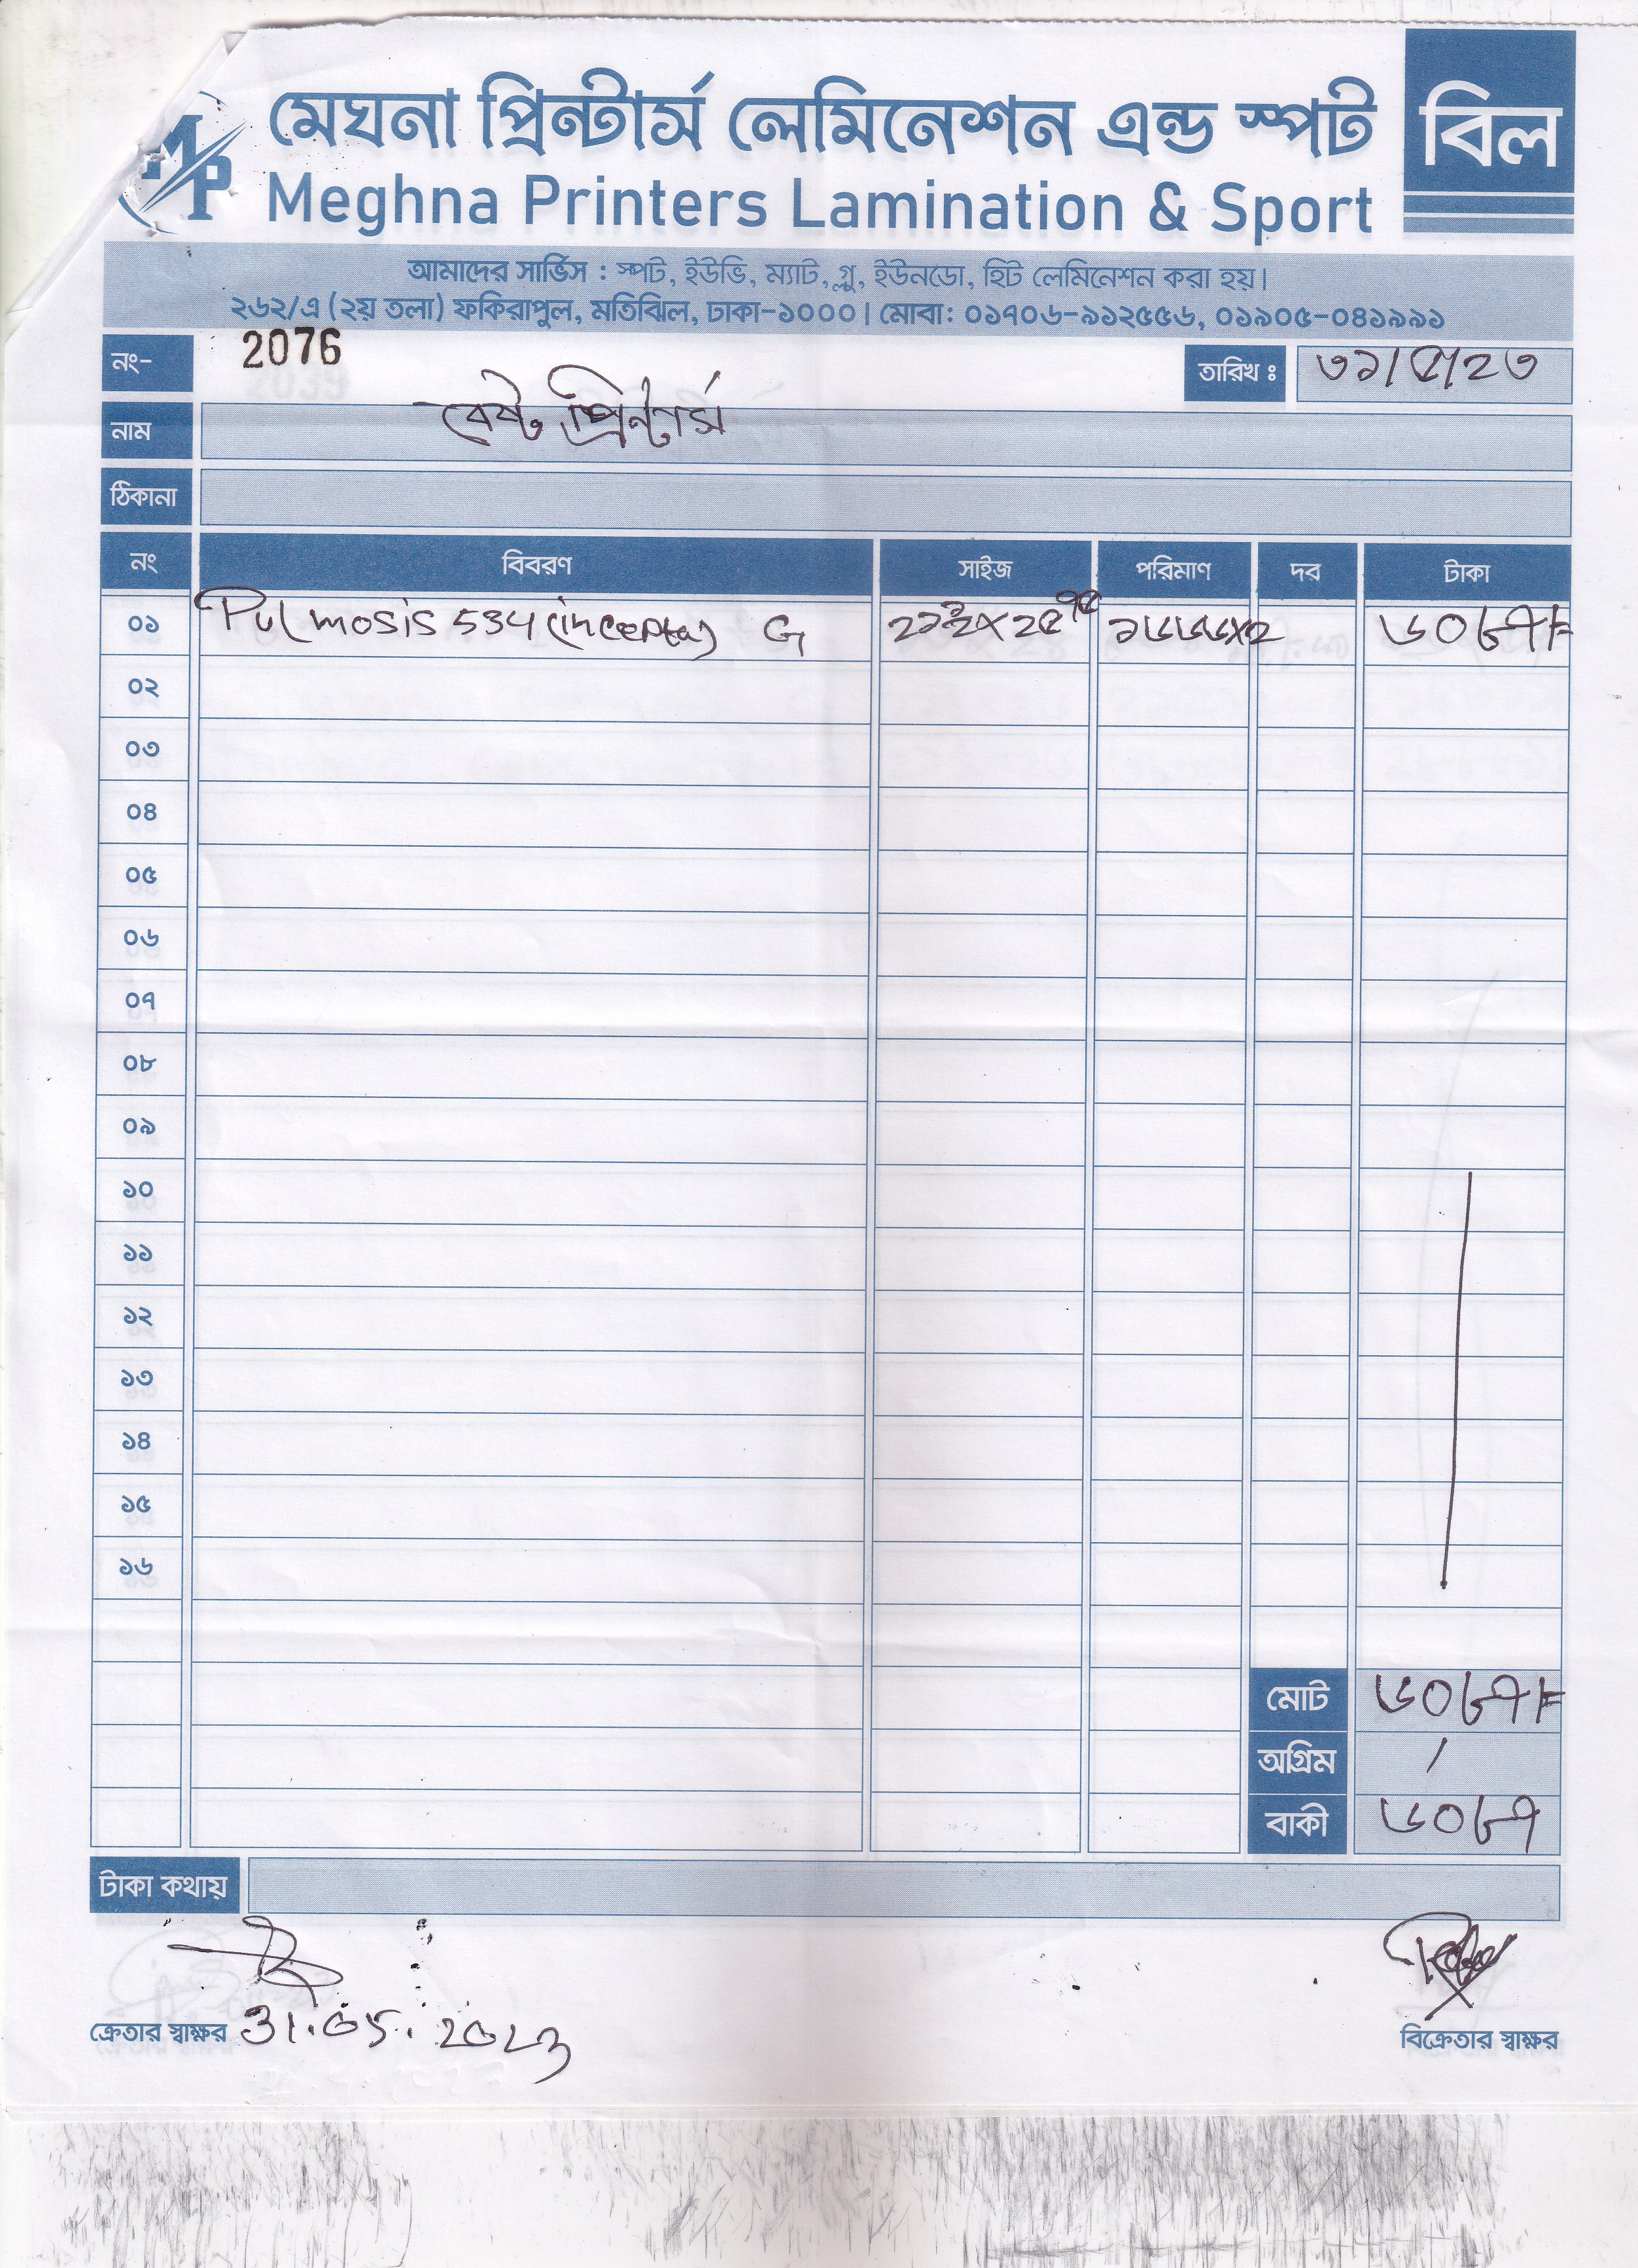 মেঘনা প্রিন্টার্স লেমিনেশন এন্ড স্পট
বিল
MP
Meghna Printers Lamination & Sport
আমাদের সার্ভিস : স্পট, ইউভি, ম্যাট, গ্লু, ইউনডো, হিট লেমিনেশন করা হয়।
২৬২/এ (২য় তলা) ফকিরাপুল, মতিঝিল, ঢাকা-১০০০। মোবা: ০১৭০৬-৯১২৫৫৬, ০১৯০৫-০৪১৯৯১
নং- 2076 তারিখ ঃ ৩১/৫/২৩
নাম বেষ্ট প্রিন্টার্স
ঠিকানা
নং বিবরণ সাইজ পরিমাণ দর টাকা
০১ Pulmosis 534 (incepta) G ৬০৮৭/=
০২
০৩
০৪
০৫
০৬
০৭
০৮
০৯
১০
১১
১২
১৩
১৪
১৫
১৬
মোট ৬০৮৭/=
অগ্রিম /
বাকী ৬০৮৭
টাকা কথায়
ক্রেতার স্বাক্ষর 31.05.2023
বিক্রেতার স্বাক্ষর